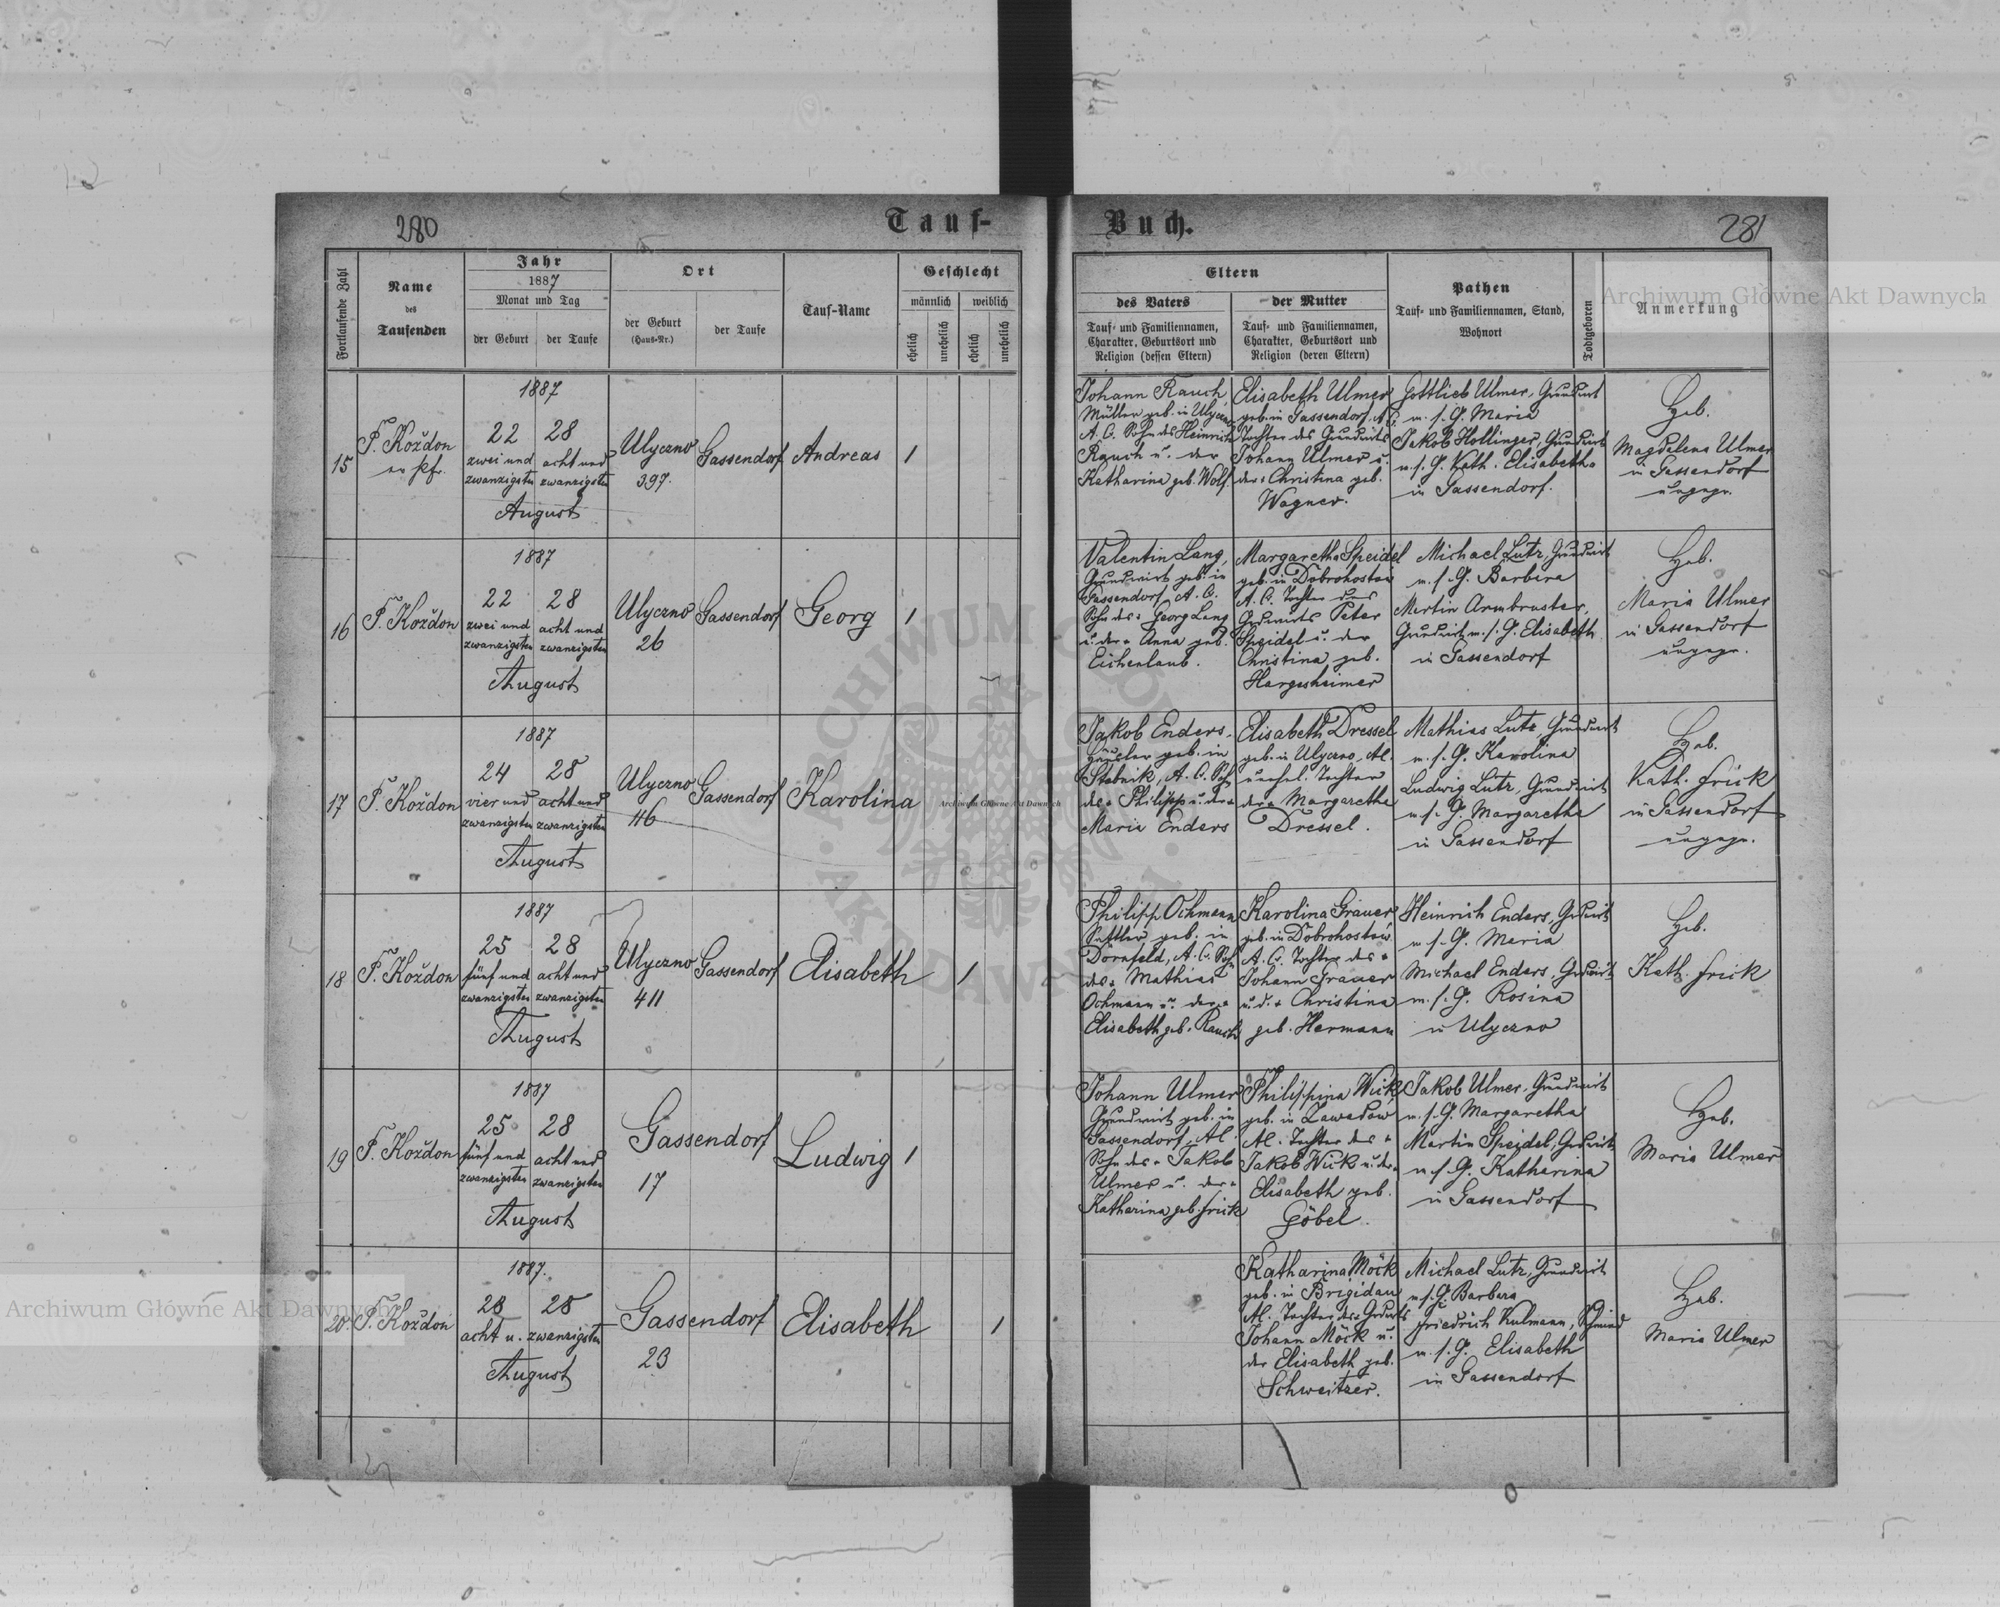 280
Tauf-
Fortlaufende Zahl
Name
des
Taufenden
Jahr
1887
Monat und Tag
der Geburt
der Taufe
Ort
der Geburt
(Haus-Nr.)
der Taufe
Tauf-Name
Geschlecht
männlich
weiblich
ehelich
unehelich
ehelich
unehelich
15
F. Koždon
ev. Pfr.
1887
22
28
zwei und
acht und
zwanzigsten
zwanzigsten
August
Ulyczno
397.
Gassendorf
Andreas
1
16
F. Koždon
1887
22
28
zwei und
acht und
zwanzigsten
zwanzigsten
August
Ulyczno
26
Gassendorf
Georg
1
17
F. Koždon
1887
24
28
vier und
acht und
zwanzigsten
zwanzigsten
August
Ulyczno
46
Gassendorf
Karolina
1
18
F. Koždon
1887
25
28
fünf und
acht und
zwanzigsten
zwanzigsten
August
Ulyczno
411
Gassendorf
Elisabeth
1
19
F. Koždon
1887
25
28
fünf und
acht und
zwanzigsten
zwanzigsten
August
Gassendorf
17
Ludwig
1
20.
F. Koždon
1887.
28
28
acht u. zwanzigsten
August
Gassendorf
23
Elisabeth
1
Buch.
281
Eltern
des Vaters
Tauf- und Familiennamen,
Charakter, Geburtsort und
Religion (dessen Eltern)
der Mutter
Tauf- und Familiennamen,
Charakter, Geburtsort und
Religion (deren Eltern)
Pathen
Tauf- und Familiennamen, Stand,
Wohnort
Todtgeboren
Anmerkung
Johann Rauch,
Müller geb. in Ulyczno
A. C. Sohn des Heinrich
Rauch u. der
Katharina geb. Wolf.
Elisabeth Ulmer
geb. in Gassendorf. A. C.
Tochter des Grundwirts
Johann Ulmer u.
der Christina geb.
Wagner.
Gottlieb Ulmer, Grundwirt
m. s. G. Maria
Jakob Hollinger, Grundwirt
m. s. G. Kath. Elisabetha
in Gassendorf.
Heb.
Magdalena Ulmer
in Gassendorf
ungepr.
Valentin Lang,
Grundwirt geb. in
Gassendorf, A. C.
Sohn des Georg Lang
u. der Anna geb.
Eichenlaub.
Margaretha Speidel
geb. in Dobrohostów
A. C. Tochter des
Grdwirts Peter
Speidel u. der
Christina geb.
Hargesheimer
Michael Lutz, Grundwirt
m. s. G. Barbara
Martin Armbruster,
Grundwirt m. s. G. Elisabeth
in Gassendorf
Heb.
Maria Ulmer
in Gassendorf
ungepr.
Jakob Enders,
geb. in
Stebnik, A. C. Sohn
des Philipp u. der
Maria Enders
Elisabeth Dressel
geb. in Ulyczno, A.
unehel. Tochter
der Margaretha
Dressel.
Mathias Lutz Grundwirt
m. s. G. Karolina
Ludwig Lutz, Grundwirt
m. s. G. Margaretha
in Gassendorf
Heb.
Kath. Frick
in Gassendorf
ungepr.
Philipp Ochmann
Sattler geb. in
Dornfeld, A. C. Sohn
des Mathias
Ochmann u. der
Elisabeth geb. Rauch
Karolina Grauer
geb. in Dobrohostów
A. C. Tochter des
Johann Grauer
u. d. Christina
geb. Hermann
Heinrich Enders, Grdwirt
m. s. G. Maria
Michael Enders, Grdwirt
m. s. G. Rosina
in Ulyczno
Heb.
Kath. Frick
Johann Ulmer
Grundwirt geb. in
Gassendorf, A.
Sohn des Jakob
Ulmer u. der
Katharina geb. Frick
Philippina Wick
geb. in Zawadow
A. Tochter des
Jakob Wick u. der
Elisabeth geb.
Göbel.
Jakob Ulmer, Grundwirt
m. s. G. Margaretha
Martin Speidel, Grdwirt
m. s. G. Katharina
in Gassendorf
Heb.
Maria Ulmer
Katharina Möck
geb. in Brigidau
A. Tochter des Grdwirts
Johann Möck u.
der Elisabeth geb.
Schweitzer.
Michael Lutz, Grundwirt
m. s. G. Barbara
Friedrich Kulmann, Schmied
m. s. G. Elisabeth
in Gassendorf
Heb.
Maria Ulmer
Archiwum Główne Akt Dawnych
Archiwum Główne Akt Dawnych
Archiwum Główne Akt Dawnych
ARCHIWUM GŁÓWNE AKT DAWNYCH